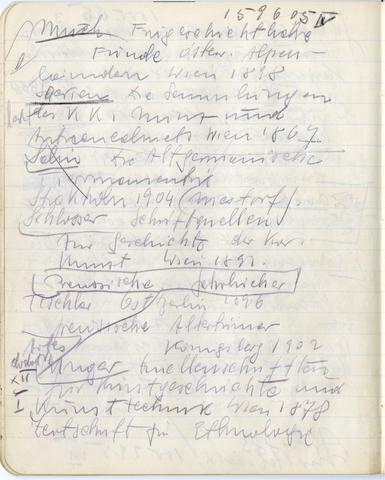 159605 IV
Much Frügeschichtliche
Funde öster. Alpen-
laendern Wien 1898
Die Sammlungen
des K.K. Münz- und
Wien 1867
Salin Die Altgermanische
Stokholm 1904 (Mestorf).
Schlosser Schriftquellen
für Geschichte der Kar.
Kunst Wien 1892.
Preussische Jahrbücher
Tischler Ostpreussen 1896
preussische Altertümer
Königsberg 1902
Unger Quellenschriften
XII für Kunstgeschichte und
I Kunsttechnik Wien 1878
Zeitschrift für Ethnologie